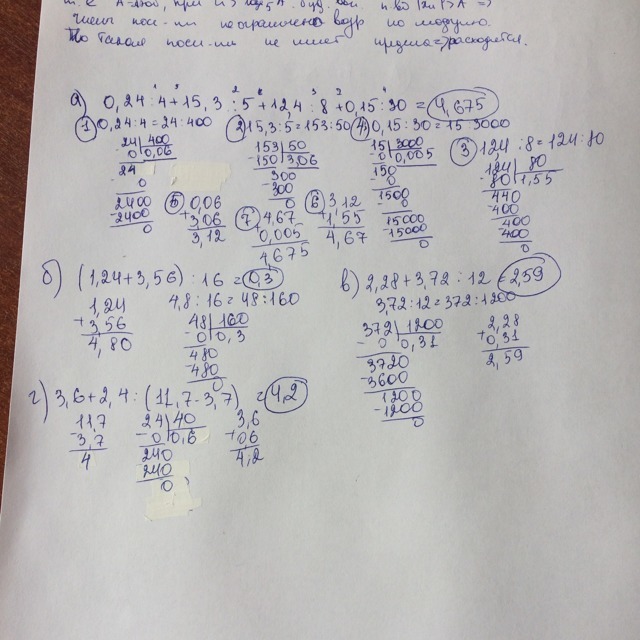 числ посл-ти неограничено возр по модулю.
То такая посл-ть не имеет предела => расходится.
а) 0,24 : 4 + 15,3 : 5 + 12,4 : 8 + 0,15 : 30 = 4,675
① 0,24:4=24:400
24 | 400
0 0,06
24
0
2400
- 2400
0
② 15,3:5=153:50
153 | 50
- 150 3,06
300
- 300
0
④ 0,15:30=15:3000
15 | 3000
0 0,005
150
0
1500
0
15000
- 15000
0
③ 12,4 : 8 = 124 : 80
124 | 80
80 1,55
440
400
400
400
0
⑤ 0,06
+ 3,06
3,12
⑦ 4,67
+ 0,005
4,675
⑥ 3,12
+ 1,55
4,67
б) (1,24+3,56) : 16 = 0,3
1,24
+ 3,56
4,80
4,8 : 16 = 48 : 160
48 | 160
- 0 0,3
480
- 480
0
в) 2,28+3,72 : 12 = 2,59
3,72:12=372:1200
372 | 1200
- 0 0,31
3720
- 3600
1200
- 1200
0
2,28
+ 0,31
2,59
г) 3,6+2,4 : (11,7-3,7) = 4,2
11,7
- 3,7
4
24 | 40
- 0 0,6
240
240
0
3,6
+ 06
4,2